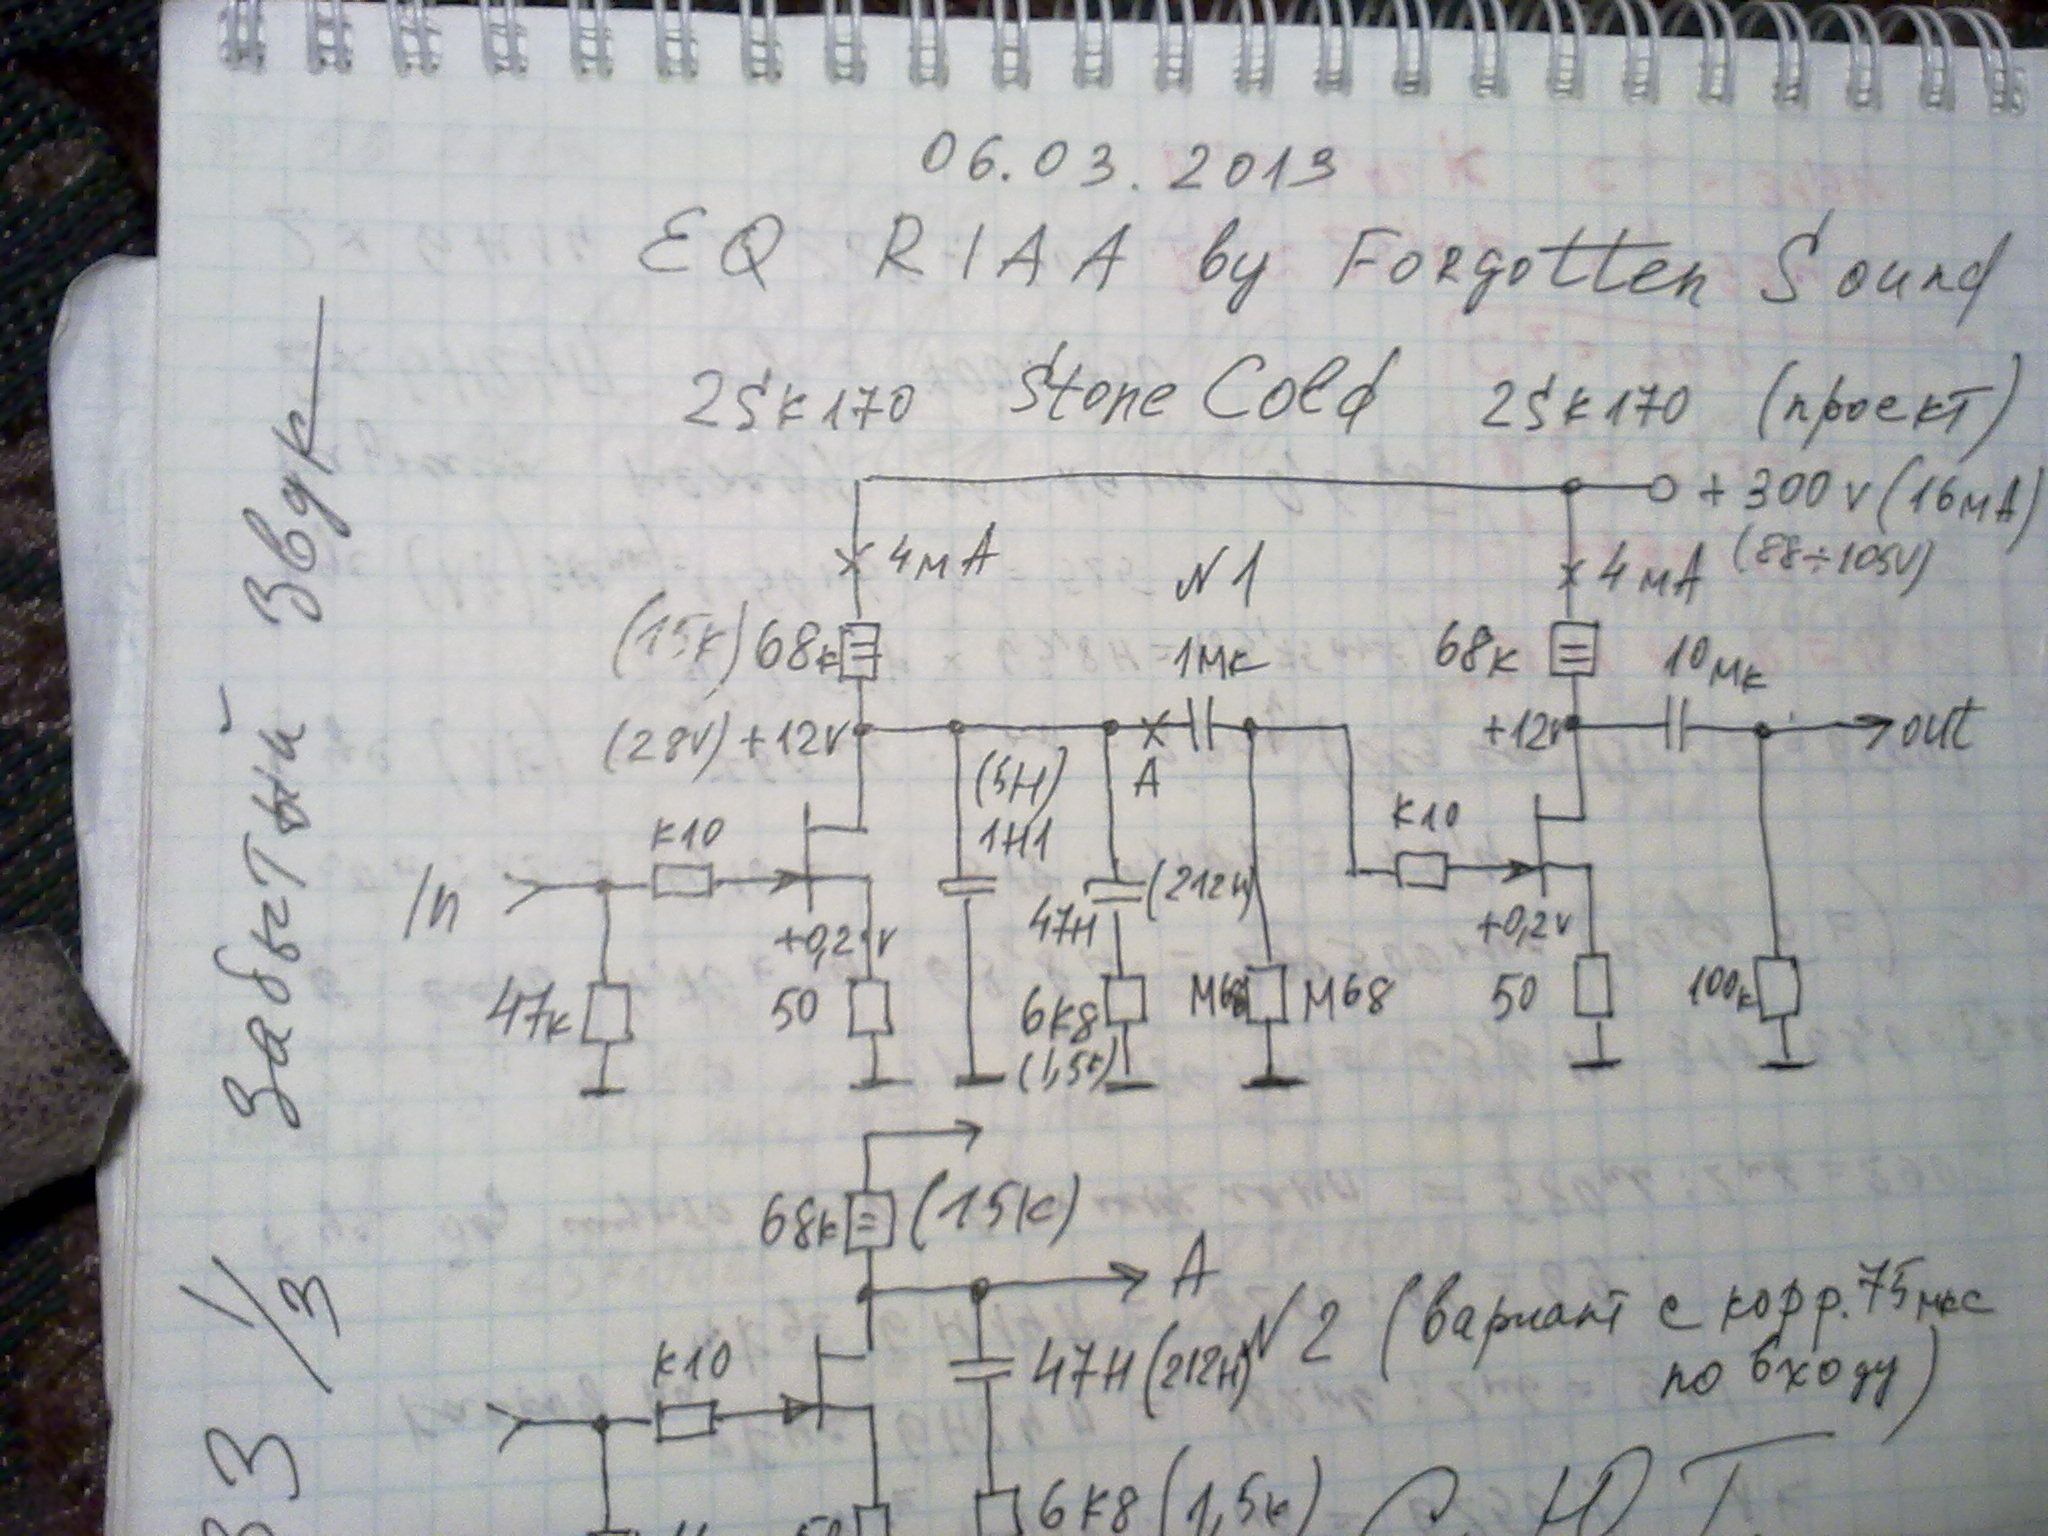 06.03.2013
EQ RIAA by Forgotten Sound
2SK170 Stone Cold 2SK170 (проект)
Забытый Звук
+300v (16мА)
(88÷105V)
4мА
N1
4мА
(15к) 68к
1мк
68к
10мк
(28V) +12v
A
+12v
out
(5H)
1H1
к10
к10
In
47H
(212H)
+0,2v
+0,2v
47к
50
6к8
(1,5к)
М68
М68
50
100к
68к (15к)
A
N2 (вариант с корр. 75мкс
по входу)
к10
47H (212H)
6к8 (1,5к)
50
ЗЗ 1/3